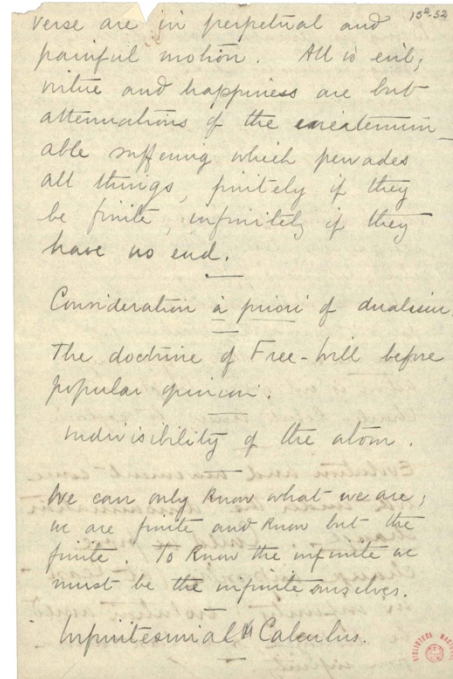 15²-52
verse are in perpetual and
painful motion. All is evil;
virtue and happiness are but
attenuations of the
able suffering which pervades
all things, finitely if they
be finite, infinitely if they
have no end.
Consideration à priori of dualism.
The doctrine of Free-will before
popular opinion.
Indivisibility of the atom.
We can only know what we are;
we are finite and know but the
finite. To know the infinite we
must be the infinite ourselves.
Infinitesimal Calculus.